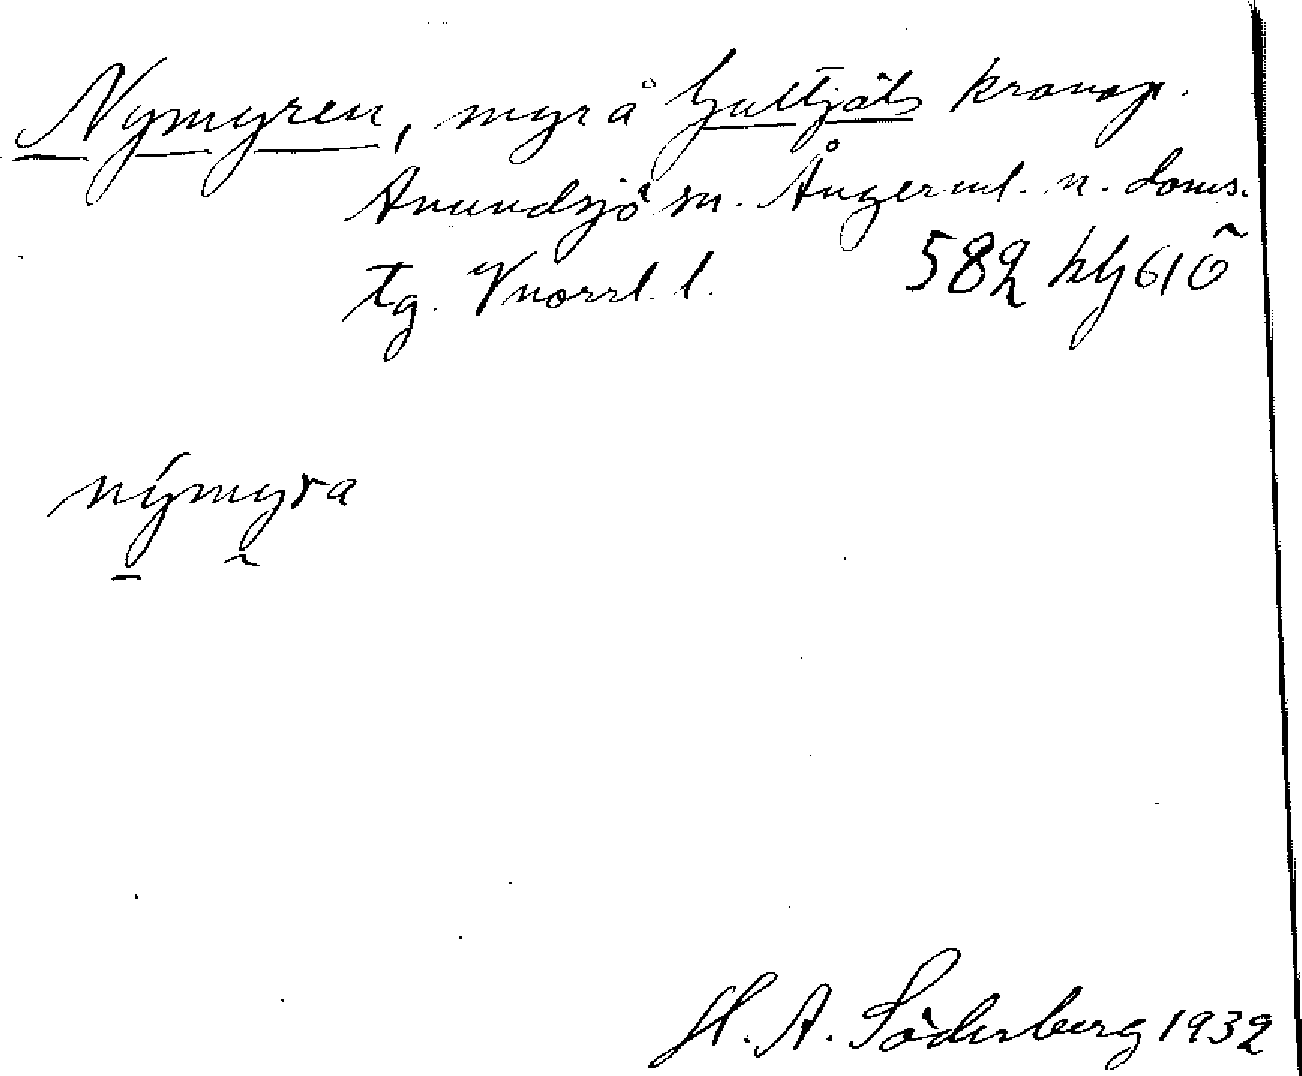 Nymyren, myr å Gulltjäls kronop.
Anundsjö sn. Ångerml. n. doms.
tg. Vnorrl. l. 582
nýmyra
H. A. Söderberg 1932